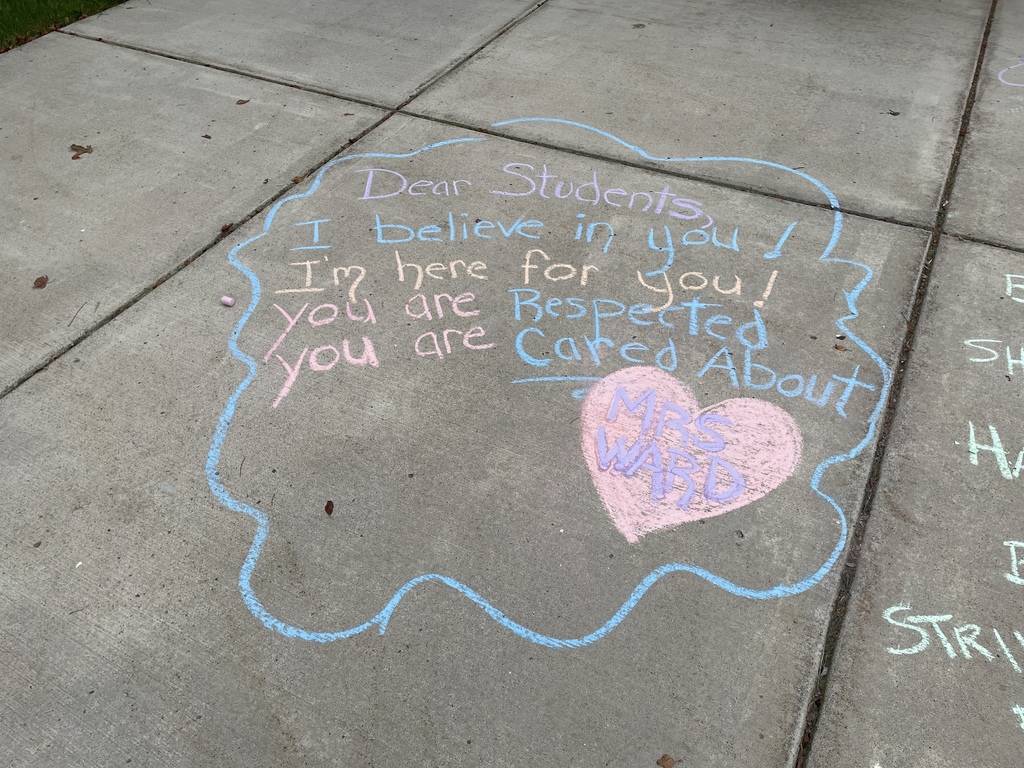 Dear Students,
I believe in you!
I'm here for you!
you are Respected
you are Cared About
MRS
WARD